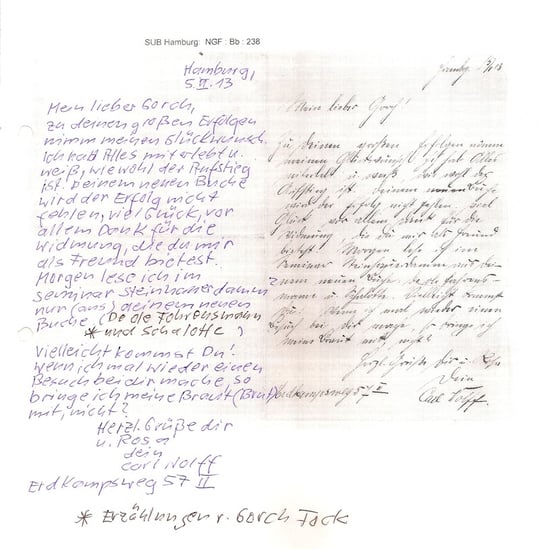 SUB Hamburg: NGF : Bb : 238
Hamburg,
5.VI.13
Mein lieber Gorch,
zu deinen großen Erfolgen
nimm meinen Glückwunsch.
Ich hab Alles miterlebt u.
weiß, wie wohl der Aufstieg
ist. Deinem neuen Buche
wird der Erfolg nicht
fehlen, viel Glück, vor
allem Dank für die
Widmung, die du mir
als Freund bietest.
Morgen lese ich im
Seminar Steinhauerdamm
nur (aus) deinem neuen
Buche (De de Fohrensmann
* und Schalotte)
Vielleicht kommst Du!
wenn ich mal wieder einen
Besuch bei dir mache, so
bringe ich meine Braut (Brut)
mit, nicht?
Herzl. Grüße dir
u. Rosa
dein
Carl Wolff
Erdkampsweg 57 II
* Erzählungen v. Gorch Fock
Mein lieber Gorch!
Zu Deinen großen Erfolgen nimm
meinen Glückwunsch. Ich hab Alles
miterlebt u. weiß,
ist. Deinem neuen Buche
wird der Erfolg nicht fehlen. Viel
Glück, vor allem Dank für die
Widmung, die du mir als Freund
bietest. Morgen lese ich im
Seminar
neuen Buche
Vielleicht kommst
Du!
Besuch bei dir mache, so bringe ich
meine Braut mit, nicht?
Herzl. Grüße Dir u.
Dein
Erdkampsweg 57 II
Carl Wolff.